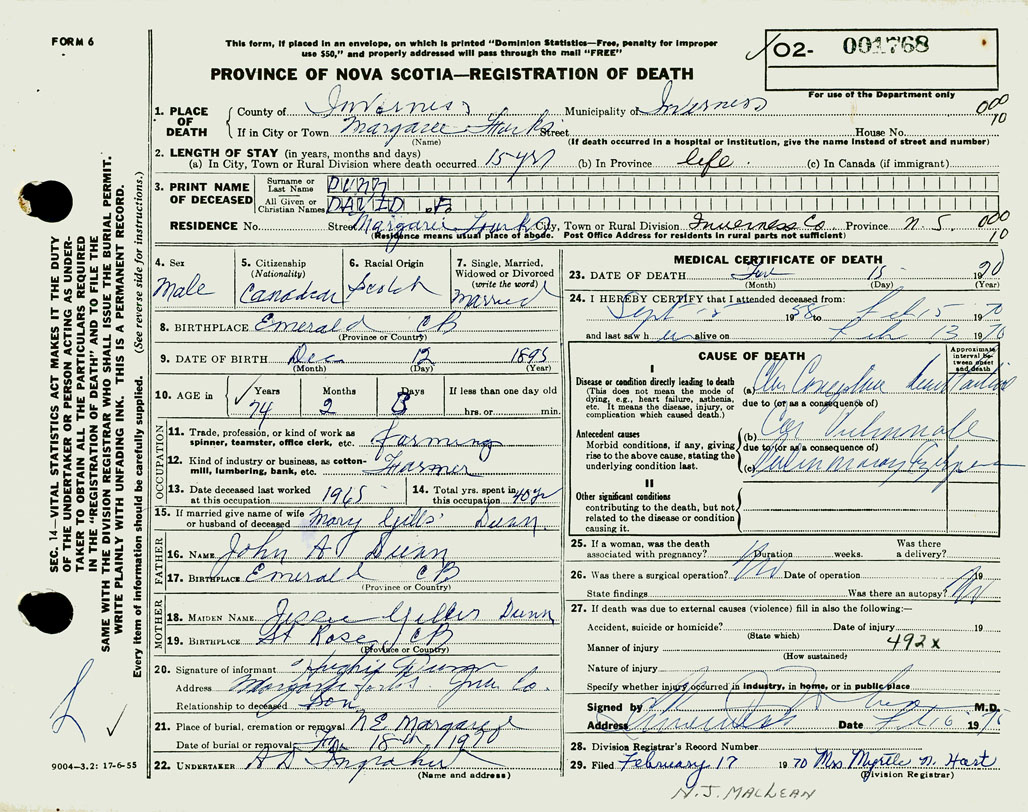 FORM 6
This form, if placed in an envelope, on which is printed "Dominion Statistics—Free, penalty for improper
use $50," and properly addressed will pass through the mail "FREE"
O2- 001768
For use of the Department only
PROVINCE OF NOVA SCOTIA—REGISTRATION OF DEATH
1. PLACE OF DEATH
County of Inverness Municipality of Inverness
000
70
If in City or Town Margaree Forks Street House No.
(Name) (If death occurred in a hospital or institution, give the name instead of street and number)
2. LENGTH OF STAY (in years, months and days)
(a) In City, Town or Rural Division where death occurred 15 yrs (b) In Province life (c) In Canada (if immigrant)
3. PRINT NAME OF DECEASED
Surname or Last Name DUNN
All Given or Christian Names DAVID
RESIDENCE No. Street Margaree Forks City, Town or Rural Division Inverness Co. Province N. S. 000
10
(Residence means usual place of abode. Post Office Address for residents in rural parts not sufficient)
4. Sex
Male
5. Citizenship
(Nationality)
Canadian
6. Racial Origin
Scotch
7. Single, Married, Widowed or Divorced
(write the word)
Married
8. BIRTHPLACE Emerald CB
(Province or Country)
9. DATE OF BIRTH Dec 12 1895
(Month) (Day) (Year)
10. AGE in
Years Months Days If less than one day old
74 2 3 hrs. or min.
OCCUPATION
11. Trade, profession, or kind of work as spinner, teamster, office clerk, etc. farming
12. Kind of industry or business, as cotton-mill, lumbering, bank, etc. Farmer
13. Date deceased last worked at this occupation 1965
14. Total yrs. spent in this occupation 40 yrs
15. If married give name of wife or husband of deceased Mary Gillis Dunn
FATHER
16. NAME John A Dunn
17. BIRTHPLACE Emerald CB
(Province or Country)
MOTHER
18. MAIDEN NAME Jessie Gillis Dunn
19. BIRTHPLACE St Rose CB
(Province or Country)
20. Signature of informant Hughie Dunn
Address Margaree Forks Inv. Co.
Relationship to deceased Son
21. Place of burial, cremation or removal N.E. Margaree
Date of burial or removal 18th 1970
22. UNDERTAKER A D
(Name and address)
MEDICAL CERTIFICATE OF DEATH
23. DATE OF DEATH 15 1970
(Month) (Day) (Year)
24. I HEREBY CERTIFY that I attended deceased from:
Sept 15 1958 to Feb 15 1970
and last saw h alive on Feb 13 1970
CAUSE OF DEATH
Approximate interval between onset and death
I
Disease or condition directly leading to death
(This does not mean the mode of dying, e.g., heart failure, asthenia, etc. It means the disease, injury, or complication which caused death.)
(a)
due to (or as a consequence of)
Antecedent causes
Morbid conditions, if any, giving rise to the above cause, stating the underlying condition last.
(b) Cor Pulmonale
due to (or as a consequence of)
(c)
II
Other significant conditions
contributing to the death, but not related to the disease or condition causing it.
25. If a woman, was the death associated with pregnancy? Duration weeks. Was there a delivery?
26. Was there a surgical operation? No Date of operation 19
State findings Was there an autopsy? No
27. If death was due to external causes (violence) fill in also the following:—
Accident, suicide or homicide? Date of injury 19
(State which)
Manner of injury 492x
(How sustained)
Nature of injury
Specify whether injury occurred in industry, in home, or in public place
Signed by M.D.
Address Inverness Date 16 1970
28. Division Registrar's Record Number
29. Filed February 17 1970 Mrs Myrtle N. Hart
(Division Registrar)
N.J. MACLEAN
SEC. 14—VITAL STATISTICS ACT MAKES IT THE DUTY
OF THE UNDERTAKER OR PERSON ACTING AS UNDER-
TAKER TO OBTAIN ALL THE PARTICULARS REQUIRED
IN THE "REGISTRATION OF DEATH" AND TO FILE THE
SAME WITH THE DIVISION REGISTRAR WHO SHALL ISSUE THE BURIAL PERMIT.
WRITE PLAINLY WITH UNFADING INK. THIS IS A PERMANENT RECORD.
Every item of information should be carefully supplied. (See reverse side for instructions.)
9004-3.2: 17-6-55